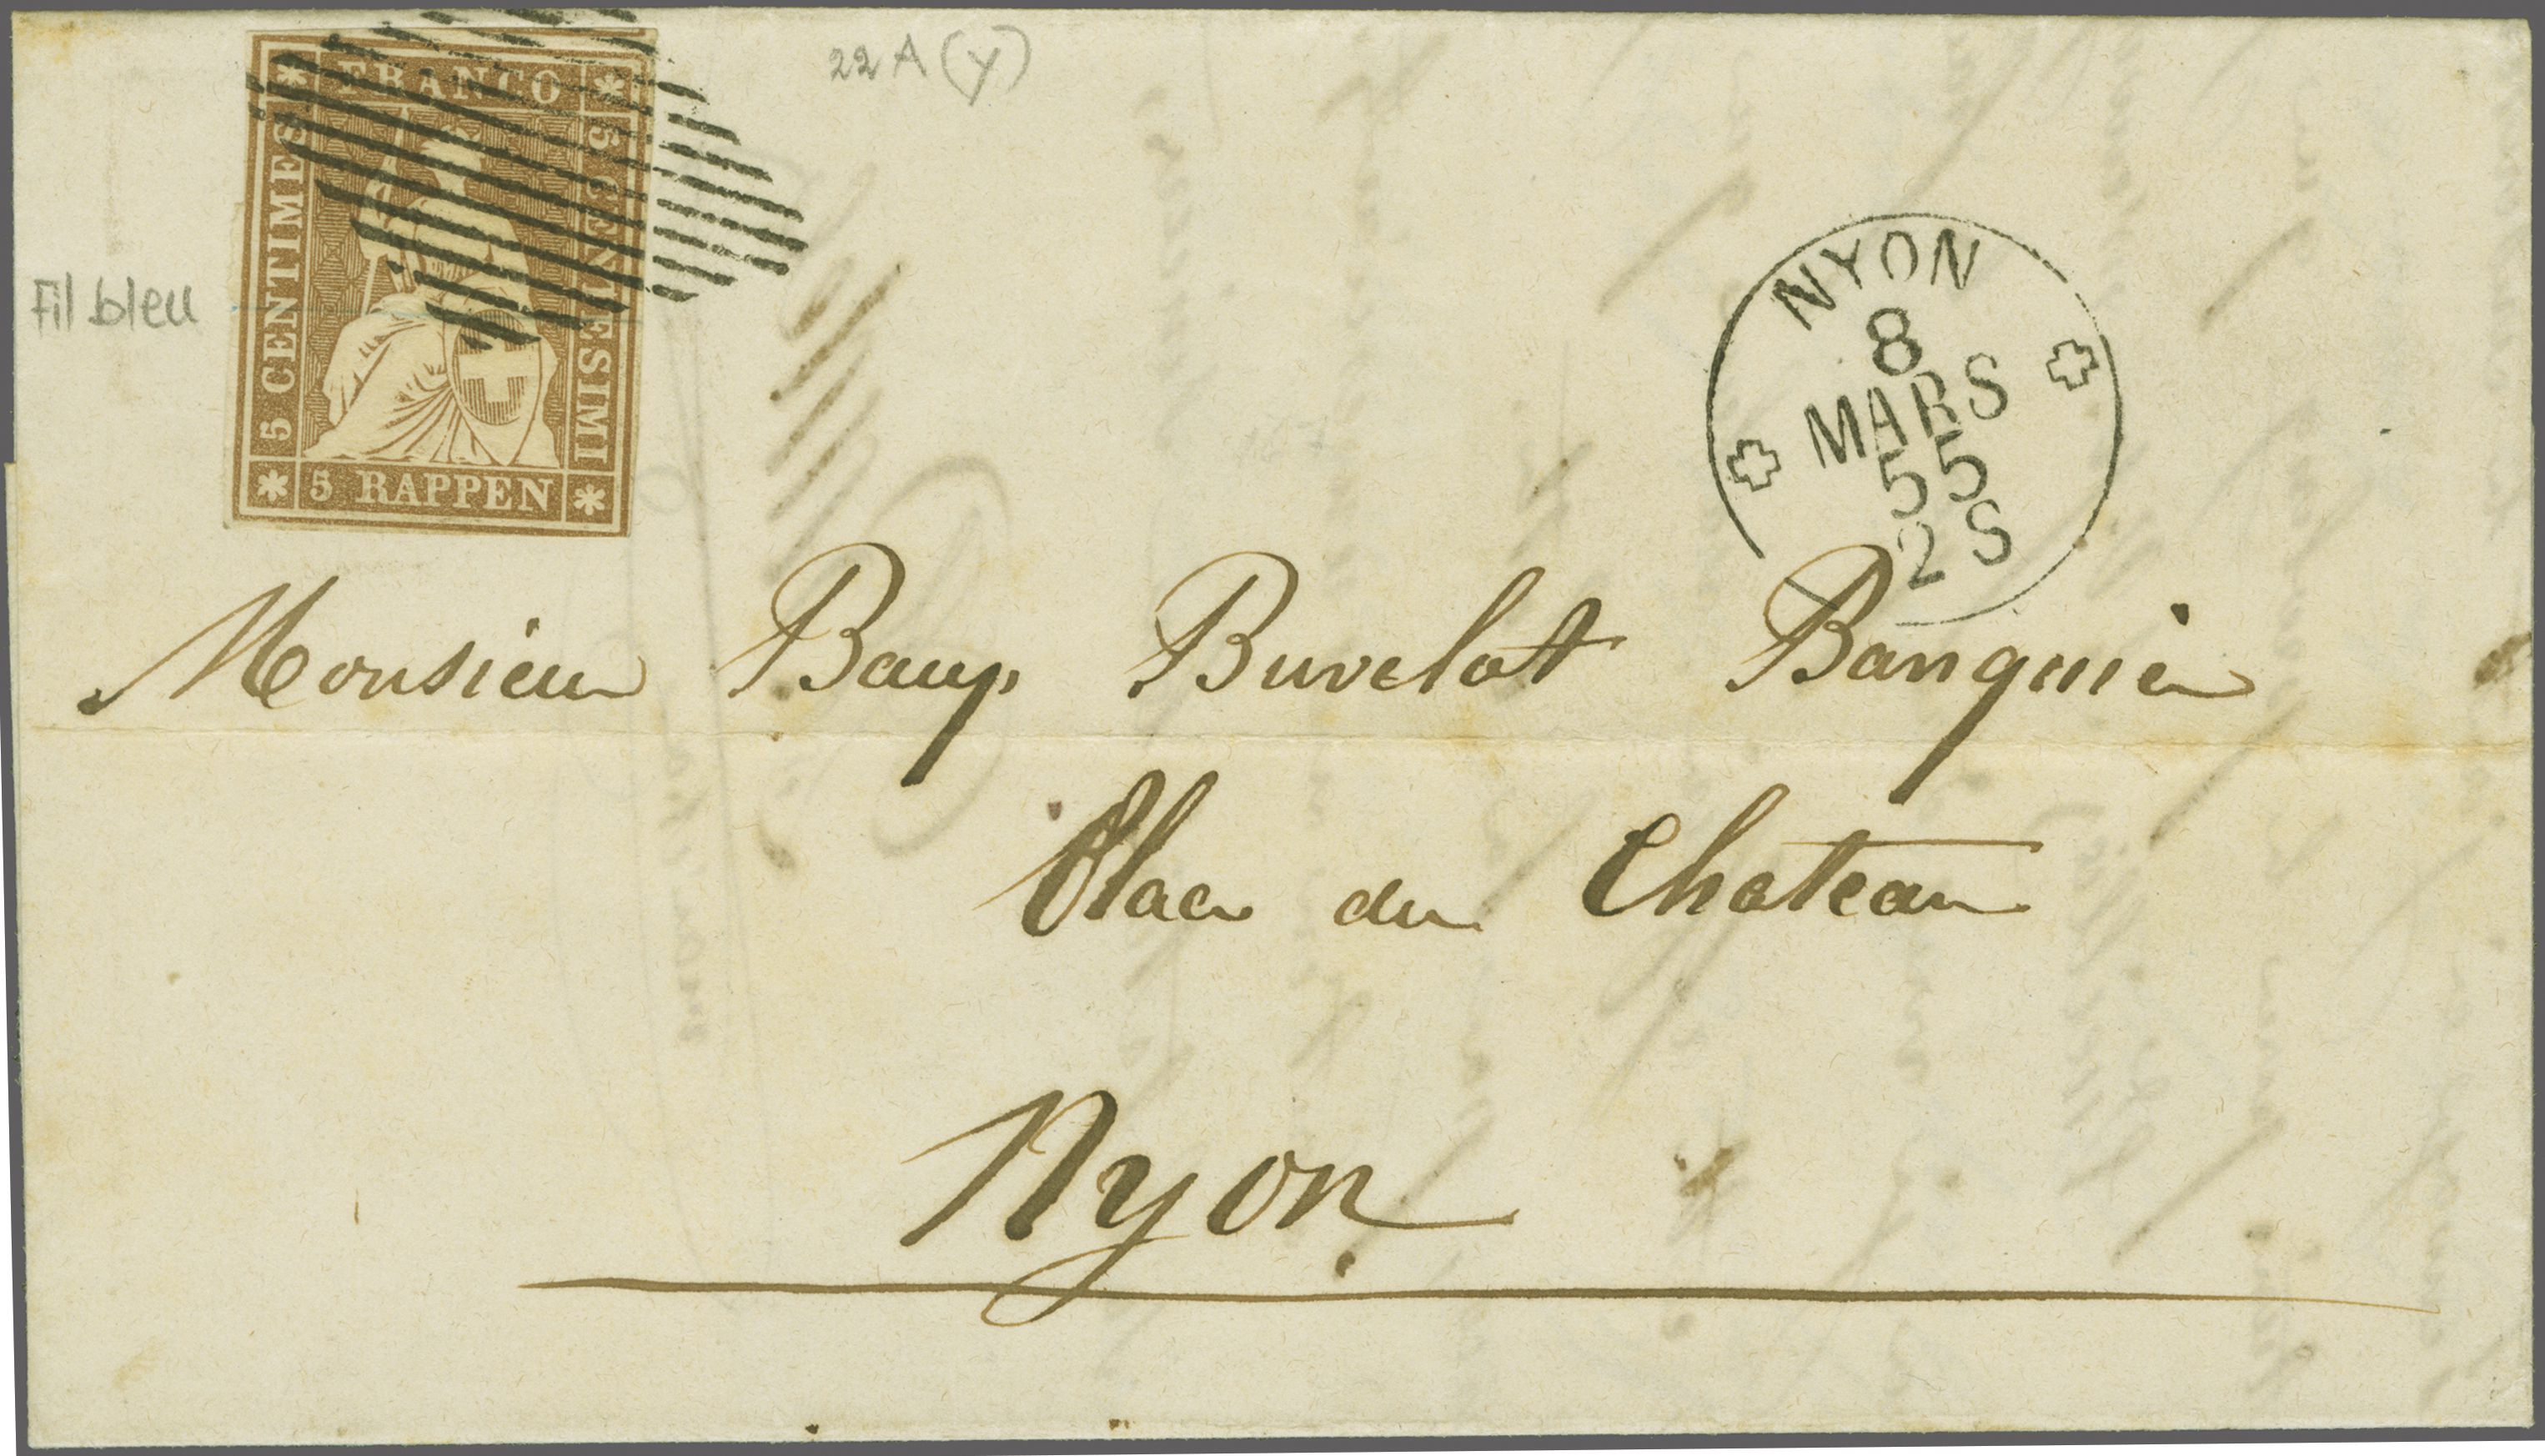 22 A (y)
FRANCO
5 CENTIMES
5 CENTESIMI
5 RAPPEN
Fil bleu
NYON
8
MARS
55
2 S
Monsieur Baup Buvelot Banquier
Place du Chateau
Nyon